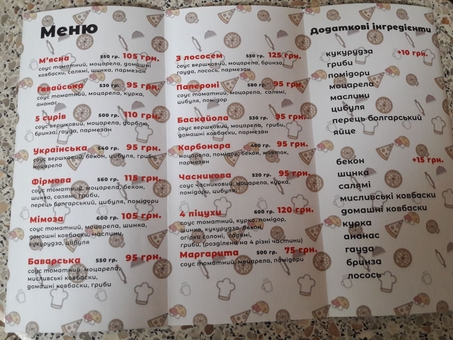 Меню
М'ясна 550 гр. 105 грн.
соус томатний, моцарела, домашні
ковбаски, салямі, шинка, пармезан
Гавайська 530 гр. 95 грн.
соус томатний, моцарела, курка,
ананас
5 сирів 500 гр. 110 грн.
соус вершковий, моцарела, дорблю,
бринза, гауда, пармезан
Українська 640 гр. 95 грн.
соус вершковий, бекон, цибуля, гриби,
моцарела
Фірмова 560 гр. 115 грн.
соус томатний, моцарела, бекон,
шинка, салямі, гриби,
перець болгарський, цибуля, помідори
Мімоза 600 гр. 105 грн.
соус томатний, моцарела, шинка,
домашні ковбаски, кукурудза,
цибуля
Баварська 550 гр. 95 грн.
соус томатний, моцарела,
мисливські ковбаски,
домашні ковбаски, гриби
З лососем 550 гр. 125 грн.
соус вершковий, моцарела, бринза,
гауда, лосось, пармезан
Папероні 95 грн.
соус томатний, моцарела, салямі,
цибуля, помідор
Баскайола 95 грн.
соус вершковий, моцарела, гриби,
домашні ковбаски, пармезан
Карбонара 95 грн.
соус вершковий,
моцарела, помідор, бекон,
пармезан
Часникова 520 гр. 95 грн.
соус часниковий, моцарела, курка,
помідор
4 піцухи 600 гр. 120 грн.
соус томатний, курка, помідор,
шинка, кукурудза, бекон,
салямі,
гриби, (розділена на 4 різні частини)
Маргарита 500 гр. 75 грн.
соус томатний, моцарела, помідори
Додаткові інгредієнти
кукурудза +10 грн.
гриби
помідори
моцарела
маслини
цибуля
перець болгарський
яйце
бекон +15 грн.
шинка
салямі
мисливські ковбаски
домашні ковбаски
курка
ананас
гауда
бринза
лосось